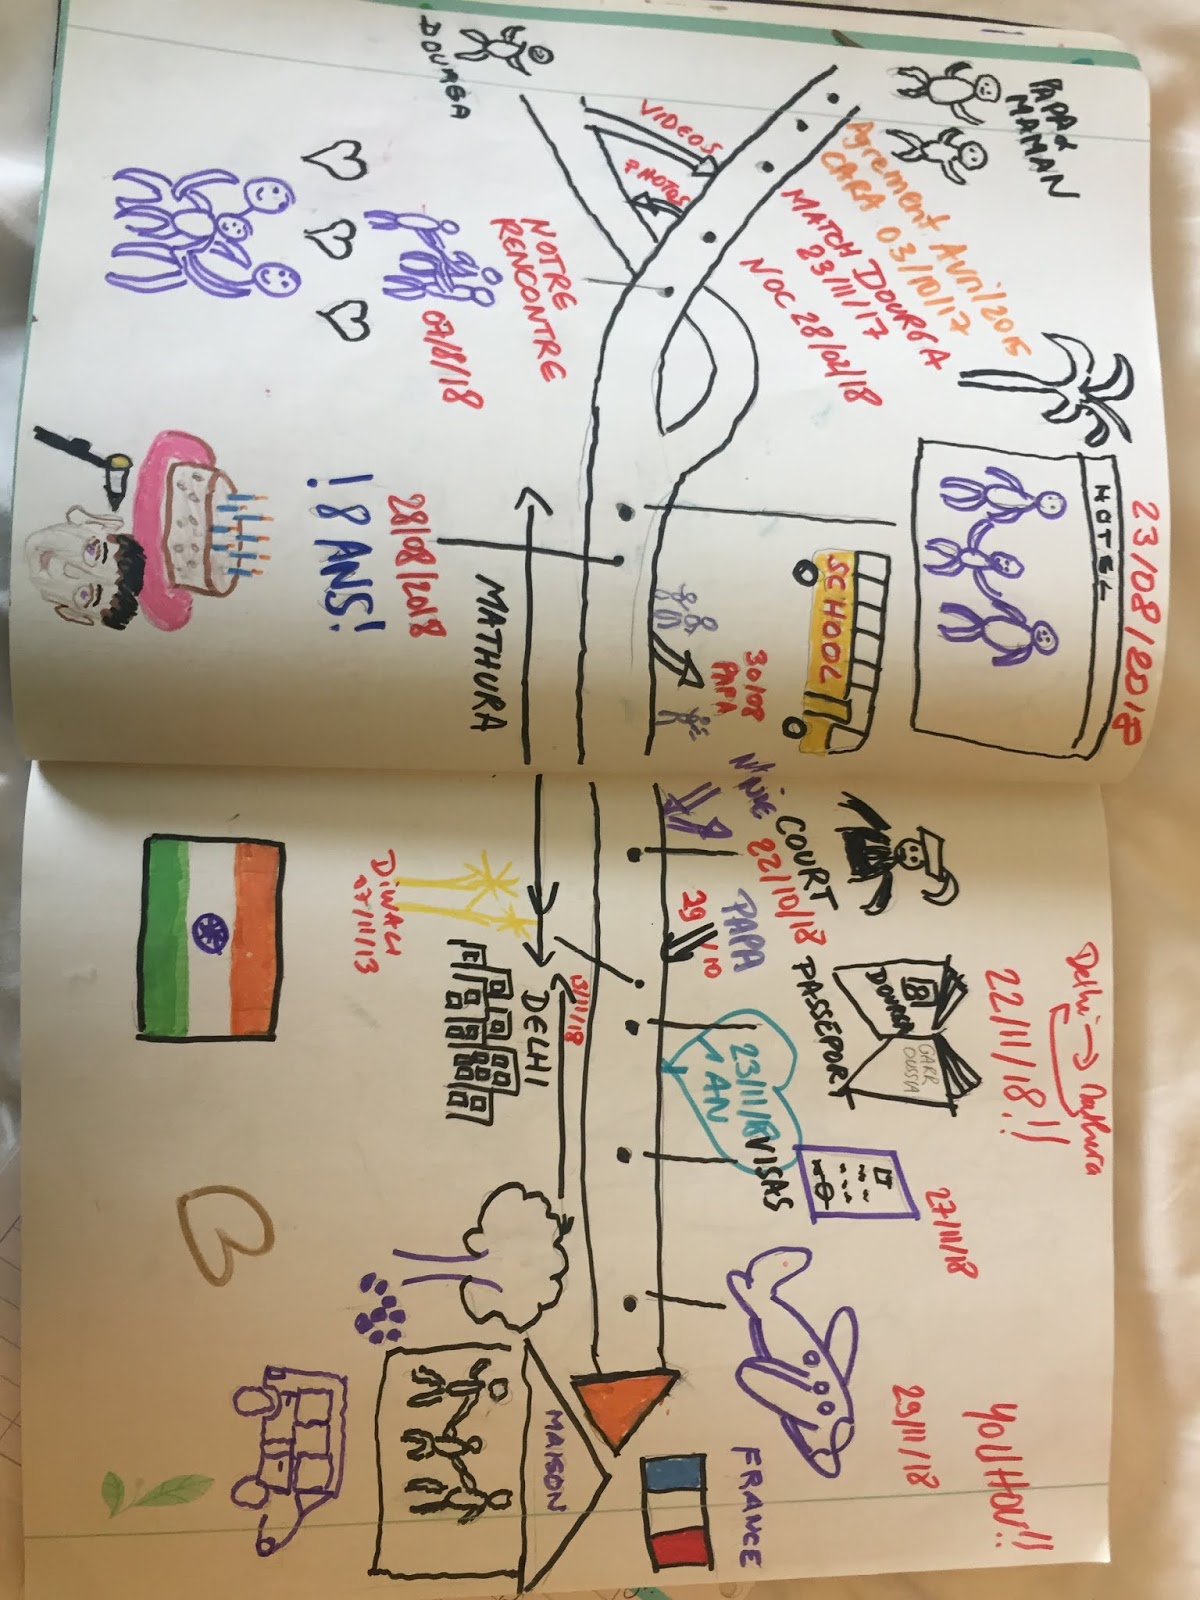 PAPA &
MAMAN
DOURGA
VIDEOS
PHOTOS
Agrement Avril 2015
CARA 03/10/17
MATCH DOURGA
23/11/17
NOC 28/02/18
NOTRE
RENCONTRE
07/8/18
23/08/2018
HOTEL
SCHOOL
28/08/2018
18 ANS!
MATHURA
30/08
PAPA
COURT
22/10/18
PAPA
29/10
DIWALI
DELHI
13/11/18
PASSEPORT
DOURGA
Delhi → Mathura
22/11/18!!
23/11/18
1 AN
VISAS
27/11/18
29/11/18
YOUHOU!!
FRANCE
MAISON